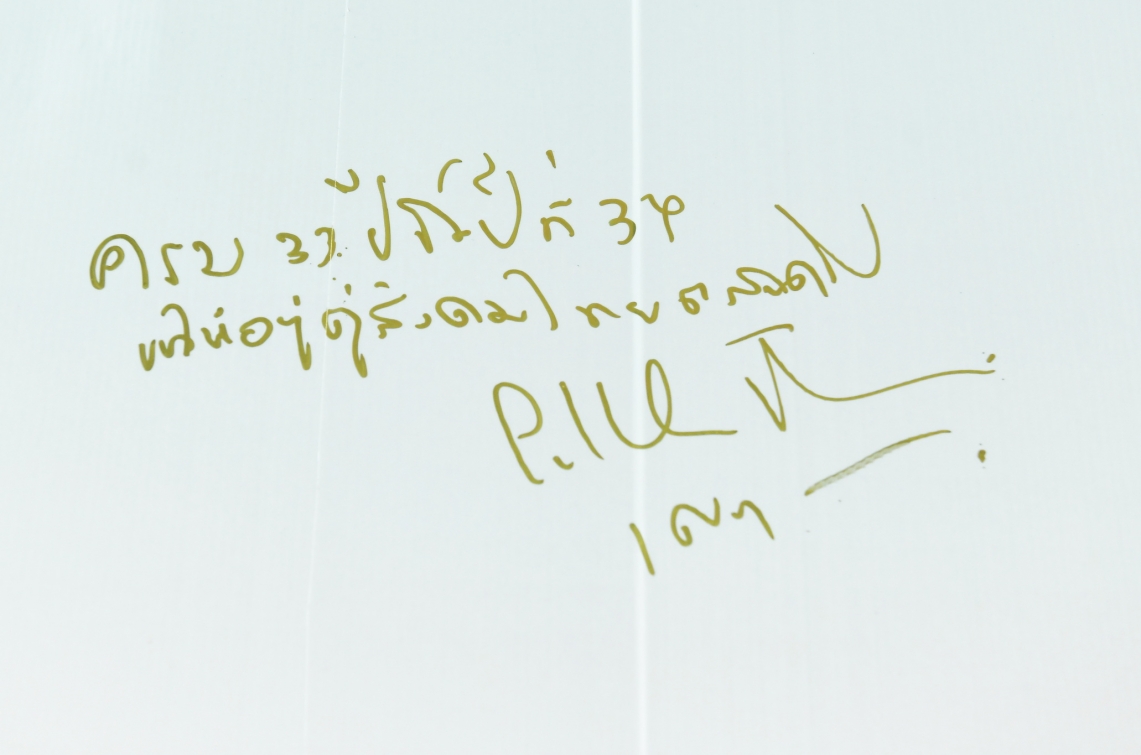 ครบ 33 ปี ขึ้นปีที่ 34
ขอให้อยู่คู่สังคมไทยตลอดไป